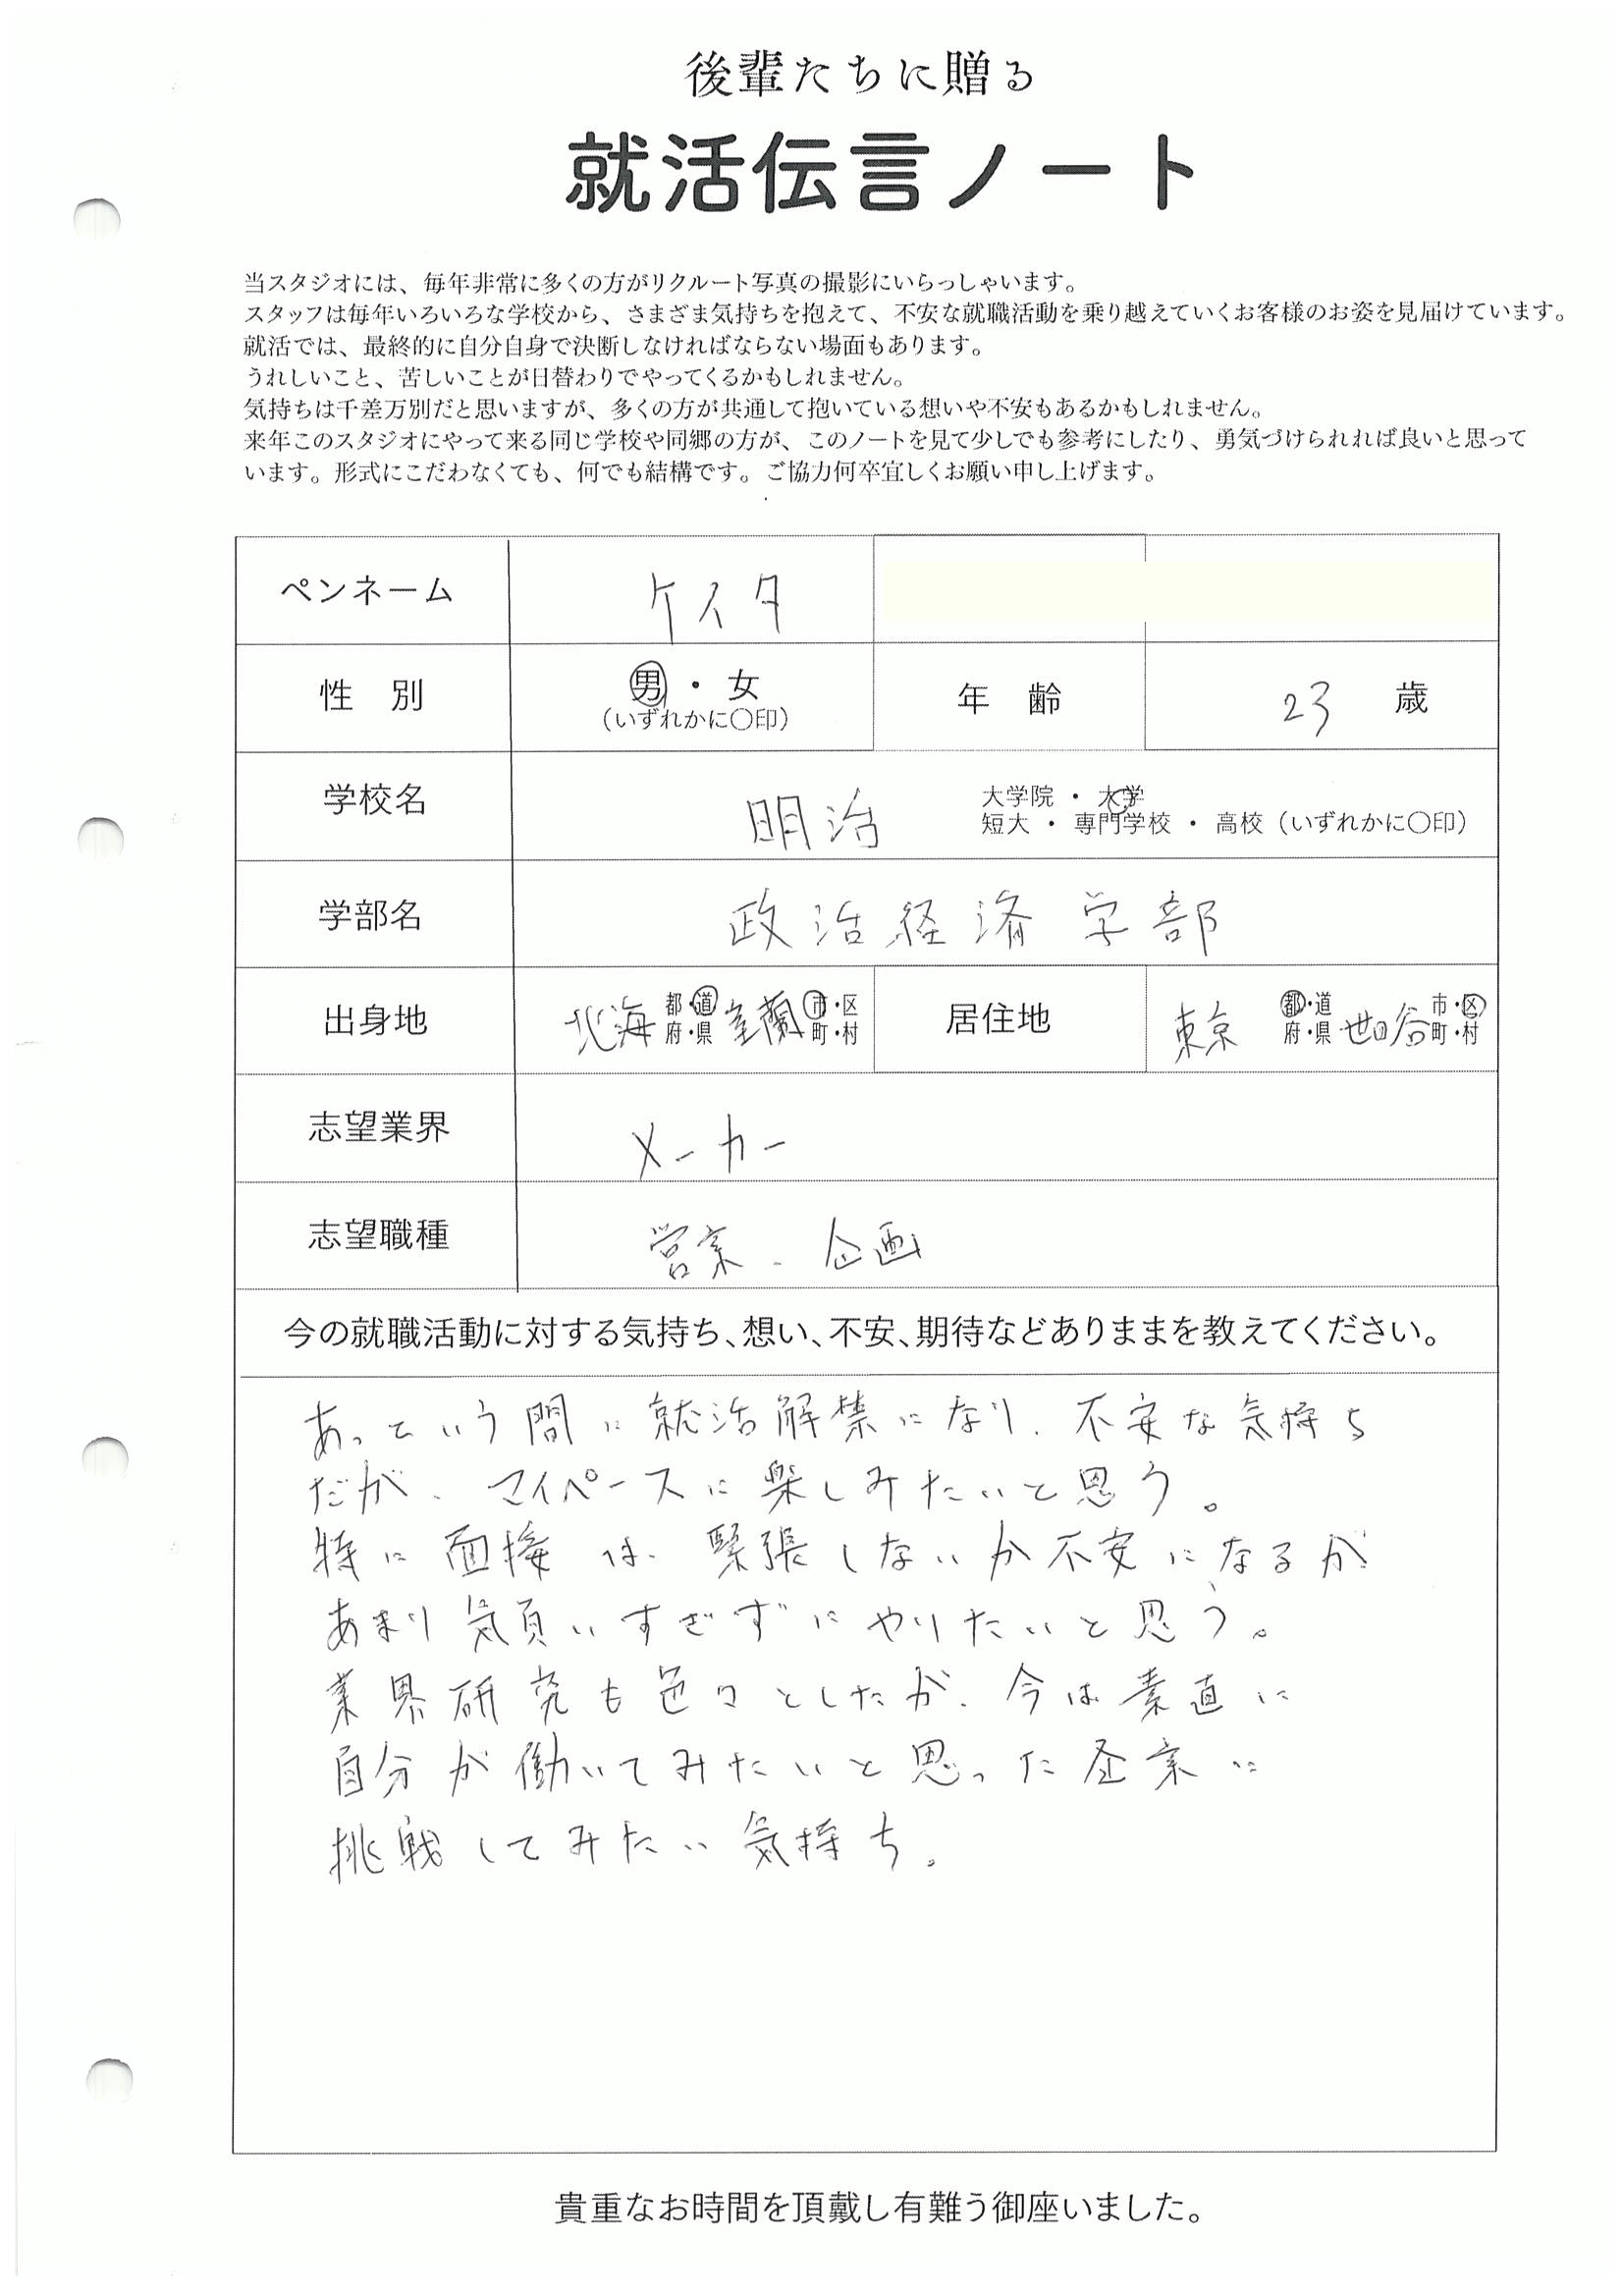 後輩たちに贈る
就活伝言ノート
当スタジオには、毎年非常に多くの方がリクルート写真の撮影にいらっしゃいます。
スタッフは毎年いろいろな学校から、さまざま気持ちを抱えて、不安な就職活動を乗り越えていくお客様のお姿を見届けています。
就活では、最終的に自分自身で決断しなければならない場面もあります。
うれしいこと、苦しいことが日替わりでやってくるかもしれません。
気持ちは千差万別だと思いますが、多くの方が共通して抱いている想いや不安もあるかもしれません。
来年このスタジオにやって来る同じ学校や同郷の方が、このノートを見て少しでも参考にしたり、勇気づけられれば良いと思って
います。形式にこだわなくても、何でも結構です。ご協力何卒宜しくお願い申し上げます。
ペンネーム ケイタ
性 別 男・女 年 齢 23 歳
(いずれかに〇印)
学校名 明治 大学院 ・ 大学
短大 ・ 専門学校 ・ 高校 (いずれかに〇印)
学部名 政治経済学部
出身地 北海 都・道 府・県 室蘭 市・区 町・村 居住地 東京 都・道 府・県 世田谷 市・区 町・村
志望業界 メーカー
志望職種 営業、企画
今の就職活動に対する気持ち、想い、不安、期待などありままを教えてください。
あっという間に就活解禁になり、不安な気持ち
だが、マイペースに楽しみたいと思う。
特に面接は、緊張しないか不安になるが
あまり気負いすぎずにやりたいと思う。
業界研究も色々としたが、今は素直に
自分が働いてみたいと思った企業に
挑戦してみたい気持ち。
貴重なお時間を頂戴し有難う御座いました。